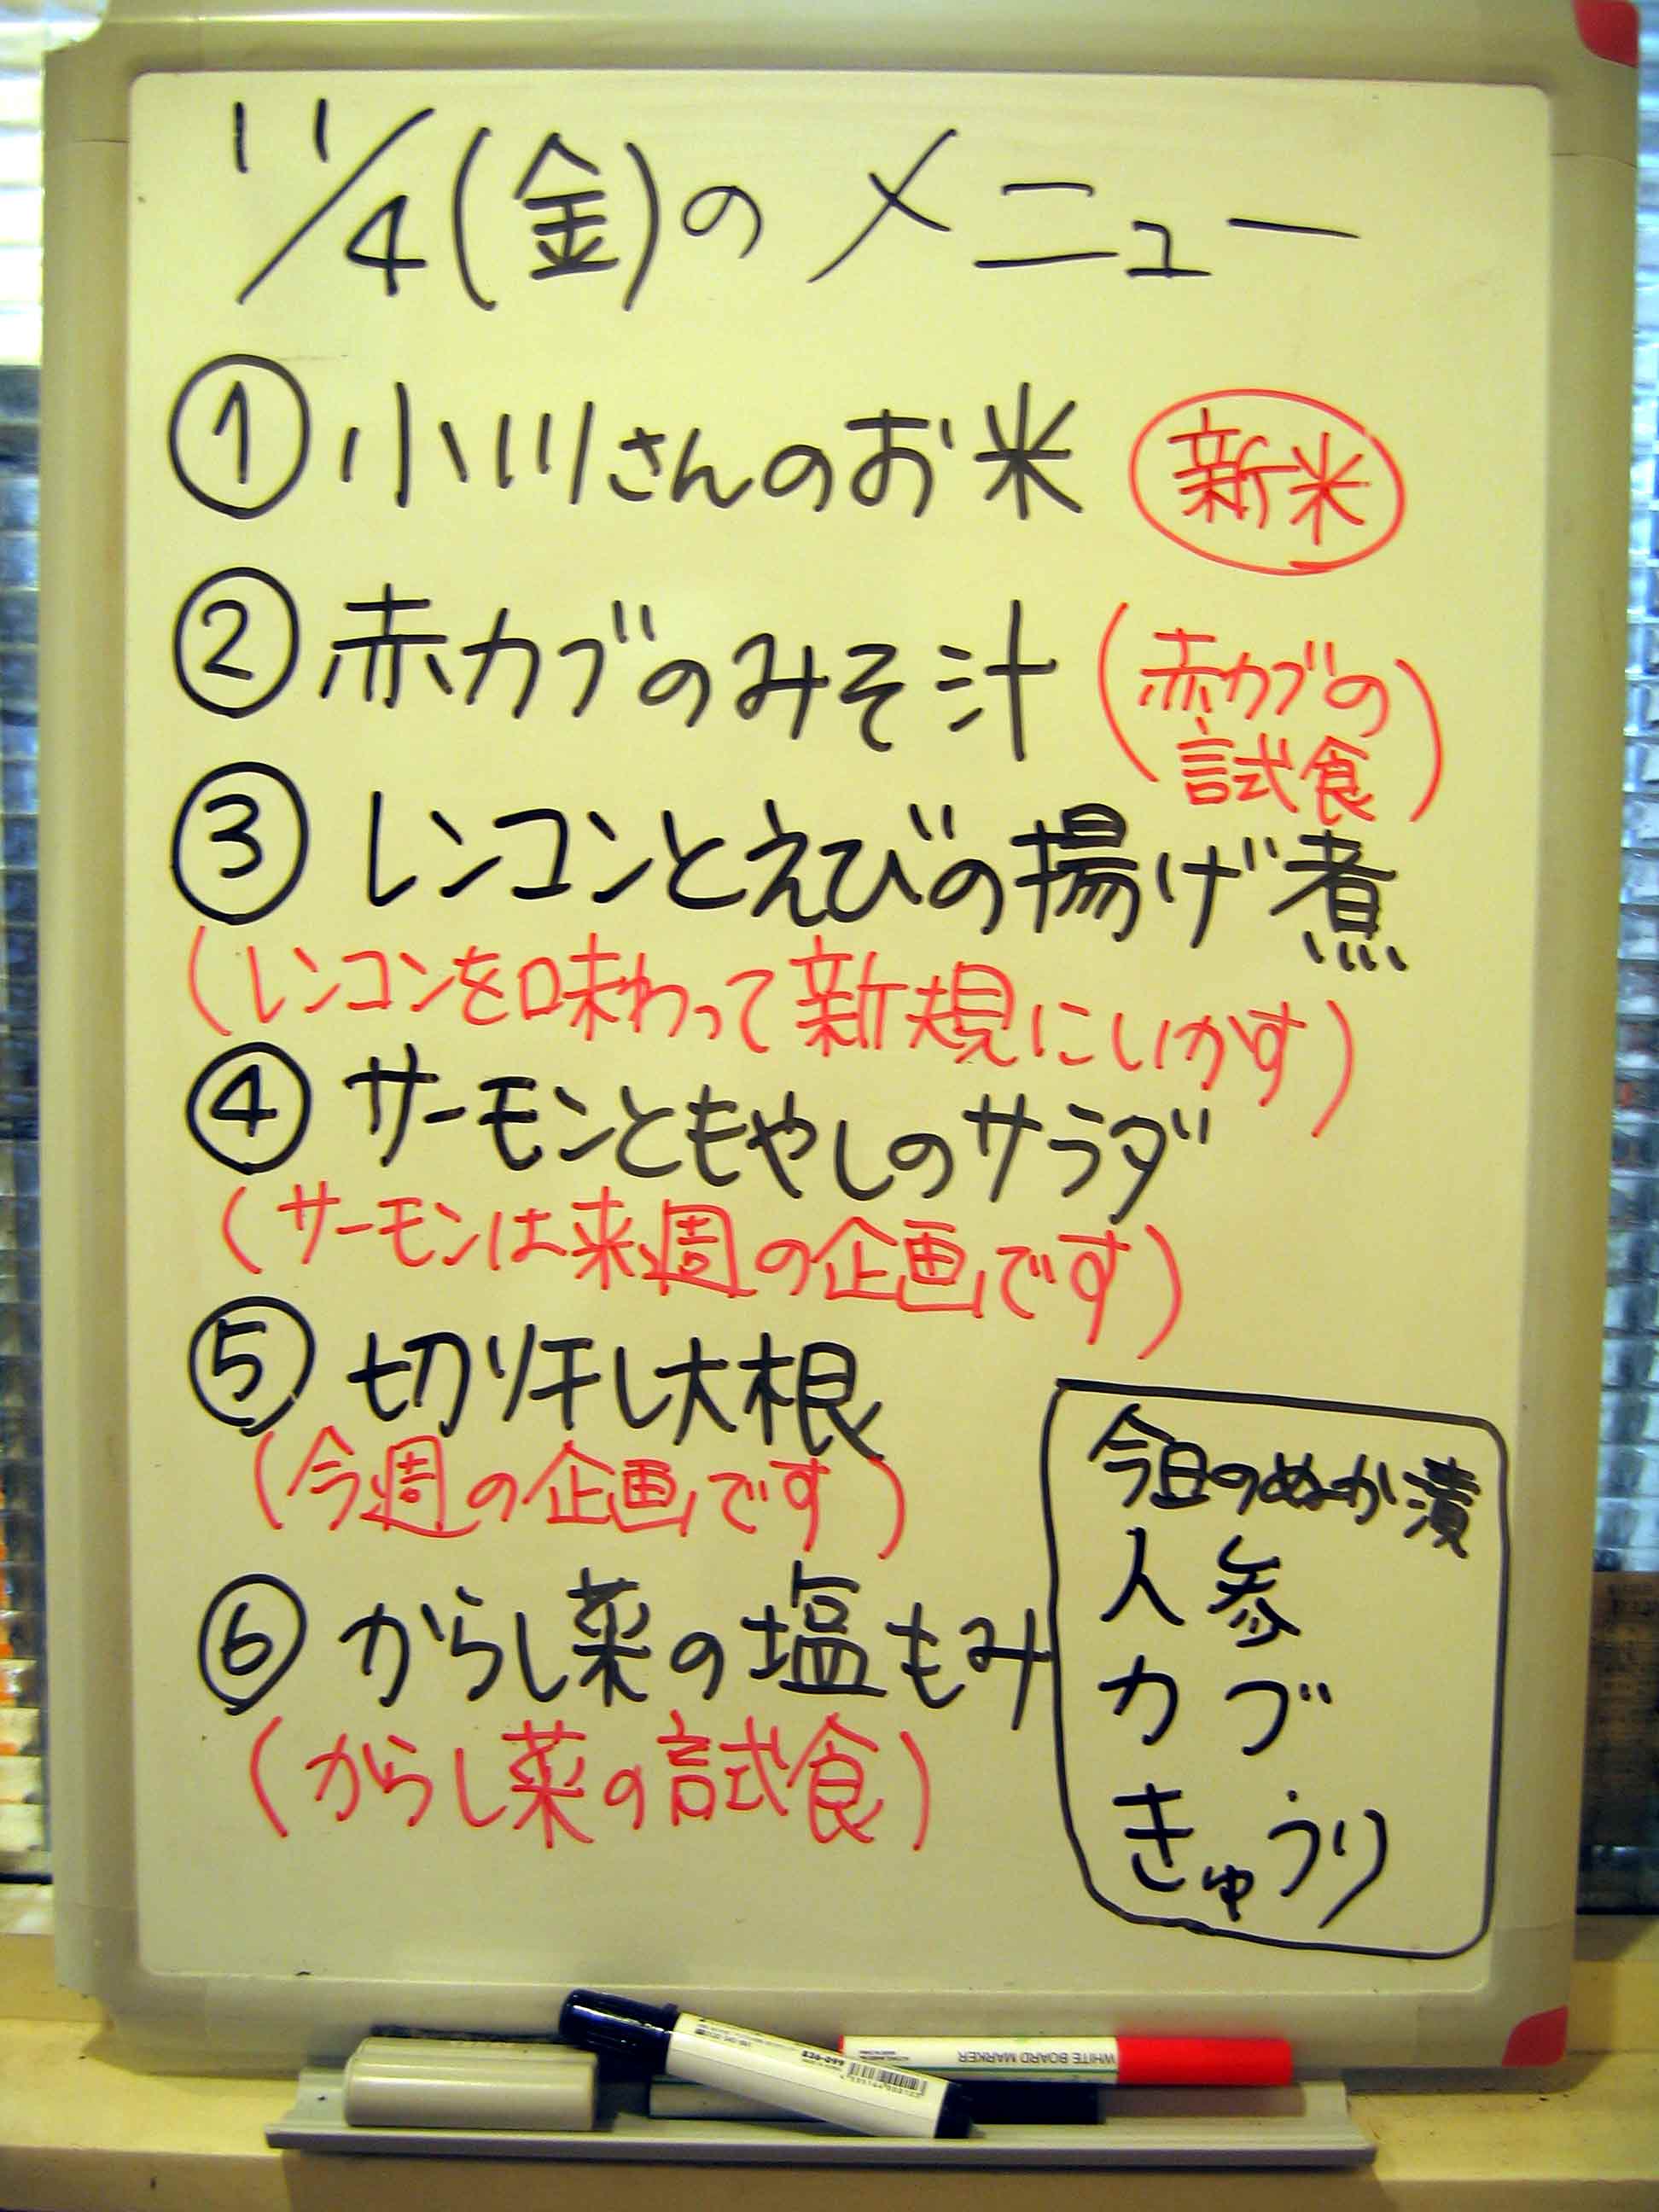 11/4(金)のメニュー
①小川さんのお米 新米
②赤カブのみそ汁(赤カブの
試食)
③レンコンとえびの揚げ煮
(レンコンを味わって新規にいかす)
④サーモンともやしのサラダ
(サーモンは来週の企画です)
⑤切り干し大根
(今週の企画です)
⑥からし菜の塩もみ
(からし菜の試食)
今日のぬか漬
人参
カブ
きゅうり
WHITE BOARD MARKER